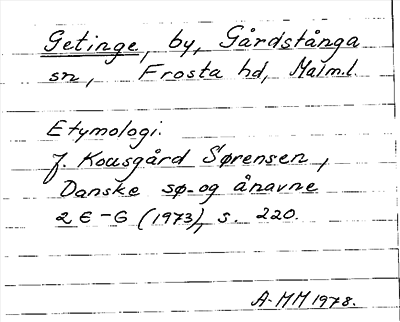 Getinge, by, Gårdstånga
sn, Frosta hd, Malm.l.
Etymologi.
J. Kousgård Sørensen,
Danske sø- og ånavne
2 E-G (1973), s. 220.
A-MM 1978.